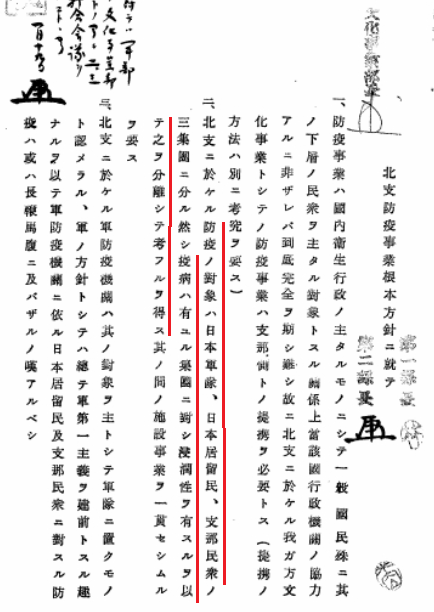 北支防疫事業根本方針ニ就テ
一、防疫事業ハ國內衞生行政ノ主タルモノニシテ一般國民殊ニ其
ノ下層ノ民衆ヲ主タル對象トスル關係上當該國行政機關ノ協力
アルニ非ザレバ到底完全ヲ期シ難シ故ニ北支ニ於ケル我ガ方文
化事業トシテノ防疫事業ハ支那側トノ提携ヲ必要トス（提携ノ
方法ハ別ニ考究ヲ要ス）
二、北支ニ於ケル防疫ノ對象ハ日本軍隊、日本居留民、支那民衆ノ
三集團ニ分ル然シ疫病ハ有ユル集團ニ對シ浸潤性ヲ有スルヲ以
テ之ヲ分離シテ考フルヲ得ス其ノ間ノ施設事業ヲ一貫セシムル
ヲ要ス
三、北支ニ於ケル軍防疫機關ハ其ノ對象ヲ主トシテ軍隊ニ置クモノ
ト認メラル、軍ノ方針トシテハ總テ軍第一主義ヲ建前トスル趣
ナルヲ以テ軍防疫機關ニ依ル日本居留民及支那民衆ニ對スル防
疫ハ或ハ長鞭馬腹ニ及バザルノ嘆アルベシ
第一課長
第二課長